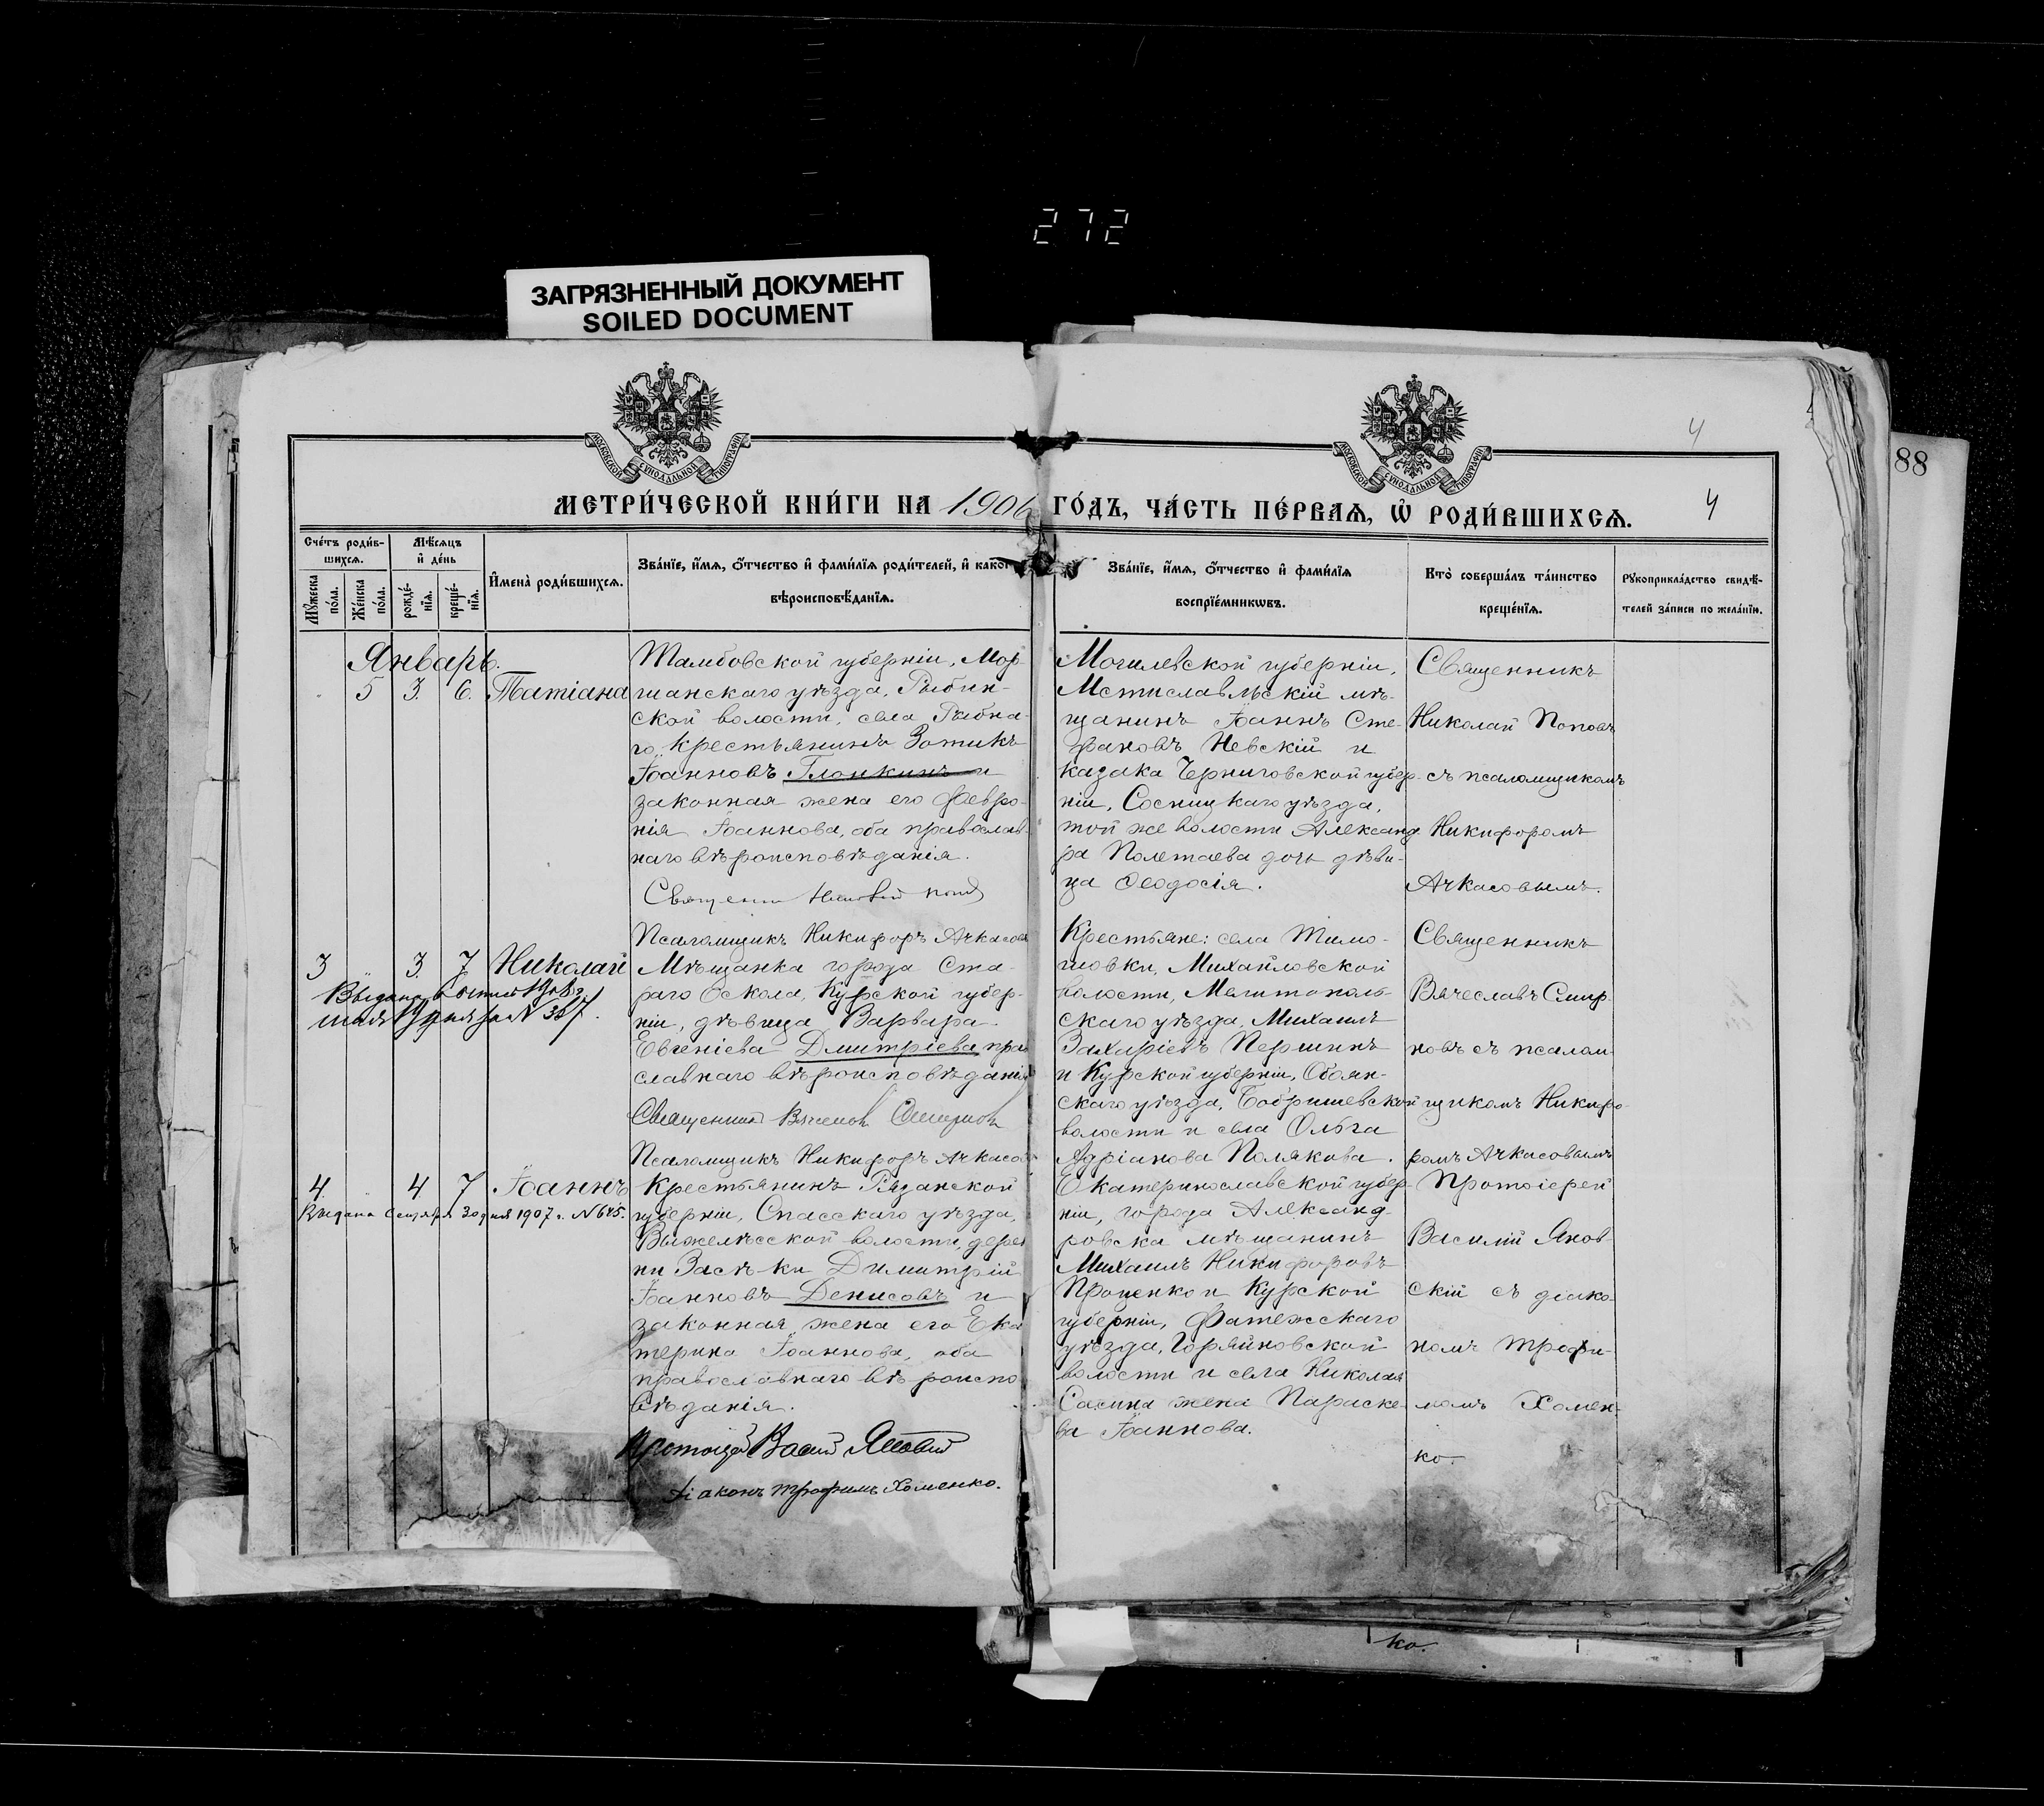 272
ЗАГРЯЗНЕННЫЙ ДОКУМЕНТ
SOILED DOCUMENT
88
4
4
МОСКОВСКОЙ СѴНОДАЛЬНОЙ ТИПОГРАФІИ
МОСКОВСКОЙ СѴНОДАЛЬНОЙ ТИПОГРАФІИ
МЕТРИ́ЧЕСКОЙ КНИ́ГИ НА 1906 ГО́ДЪ, ЧА́СТЬ ПЕ́РВАѦ, Ѡ҆ РОДИ́ВШИХСѦ.
Сче́тъ роди́в-
шихсѧ.
Мꙋ́жеска по́ла.
Же́нска по́ла.
Мѣ́сѧцъ
и҆ де́нь
рожде́-
нїѧ.
креще́-
нїѧ.
И҆мена̀ роди́вшихсѧ.
Зва́нїе, и҆́мѧ, ѻ҆́тчество и҆ фами́лїѧ роди́телей, и҆ како
вѣроисповѣ́данїѧ.
Зва́нїе, и҆́мѧ, ѻ҆́тчество и҆ фами́лїѧ
воспрїе́мникѡвъ.
Кто̀ соверша́лъ та́инство
креще́нїѧ.
Рꙋкоприкла́дство свидѣ́-
телей за́писи по жела́нїю.
Январь.
5 3. 6. Татіана
Тамбовской губерніи, Мор-
шанскаго уѣзда, Рыбин-
ской волости, села Рыбна-
го, крестьянинъ Зотикъ
Іоанновъ Глонкинъ и
законная жена его Февро-
нія Іоаннова, оба православ-
наго вѣроисповѣданія.
Псаломщикъ Никифоръ Ачкасовъ
Могилевской губерніи,
Мстиславльскій мѣ-
щанинъ Іоаннъ Сте-
фановъ Невскій и
казака Черниговской губер-
ніи, Сосницкаго уѣзда,
той же волости Александ-
ра Полетаева дочь дѣви-
ца Ѳеодосія.
Священникъ
Николай Поповъ
съ псаломщикомъ
Никифоромъ
Ачкасовымъ.
3 3. 7 Николай
Мѣщанка города Ста-
раго Оскола, Курской губер-
ніи, дѣвица Варвара
Евгеніева Дмитріева пра
славнаго вѣроисповѣданія
Псаломщикъ Никифоръ Ачкасовъ
Крестьяне: села Тимо-
шовки, Михайловской
волости, Мелитополь-
скаго уѣзда, Михаилъ
Захаріевъ Першинъ
и Курской губерніи, Обоян-
скаго уѣзда, Бобришевской
волости и села Ольга
Адріанова Полякова.
Священникъ
Вячеславъ Смир-
новъ съ псалом-
щикомъ Никифо-
ромъ Ачкасовымъ
4 4 7 Іоаннъ
Выдана Сентября 30 дня 1907 г. N 645.
Крестьянинъ Рязанской
губерніи, Спасскаго уѣзда,
Выжелѣсской волости, дерев
ни Засѣ-ки Димитрій
Іоанновъ Денисовъ и
законная жена его Ека
терина Іоаннова, оба
православнаго вѣроиспо
вѣданія.
Діаконъ Трофимъ Хоменко.
Екатеринославской губер-
ніи, города Александ-
ровска мѣщанинъ
Михаилъ Никифоровъ
Проценко и Курской
губерніи, Фатежскаго
уѣзда, Горяйновской
волости и села Николая
Сасина жена Параске-
ва Іоаннова.
Протоіерей
Василій Янов-
скій съ діако-
номъ Трофи-
момъ Хомен-
ко.
ко.